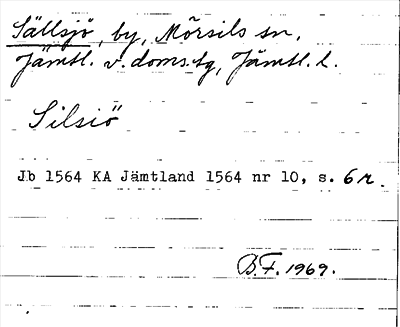 Sällsjö, by, Mörsils sn,
Jämtl. v. doms.tg, Jämtl. l.
Silsiö
Jb 1564 KA Jämtland 1564 nr 10, s. 6 r.
B.F. 1969.